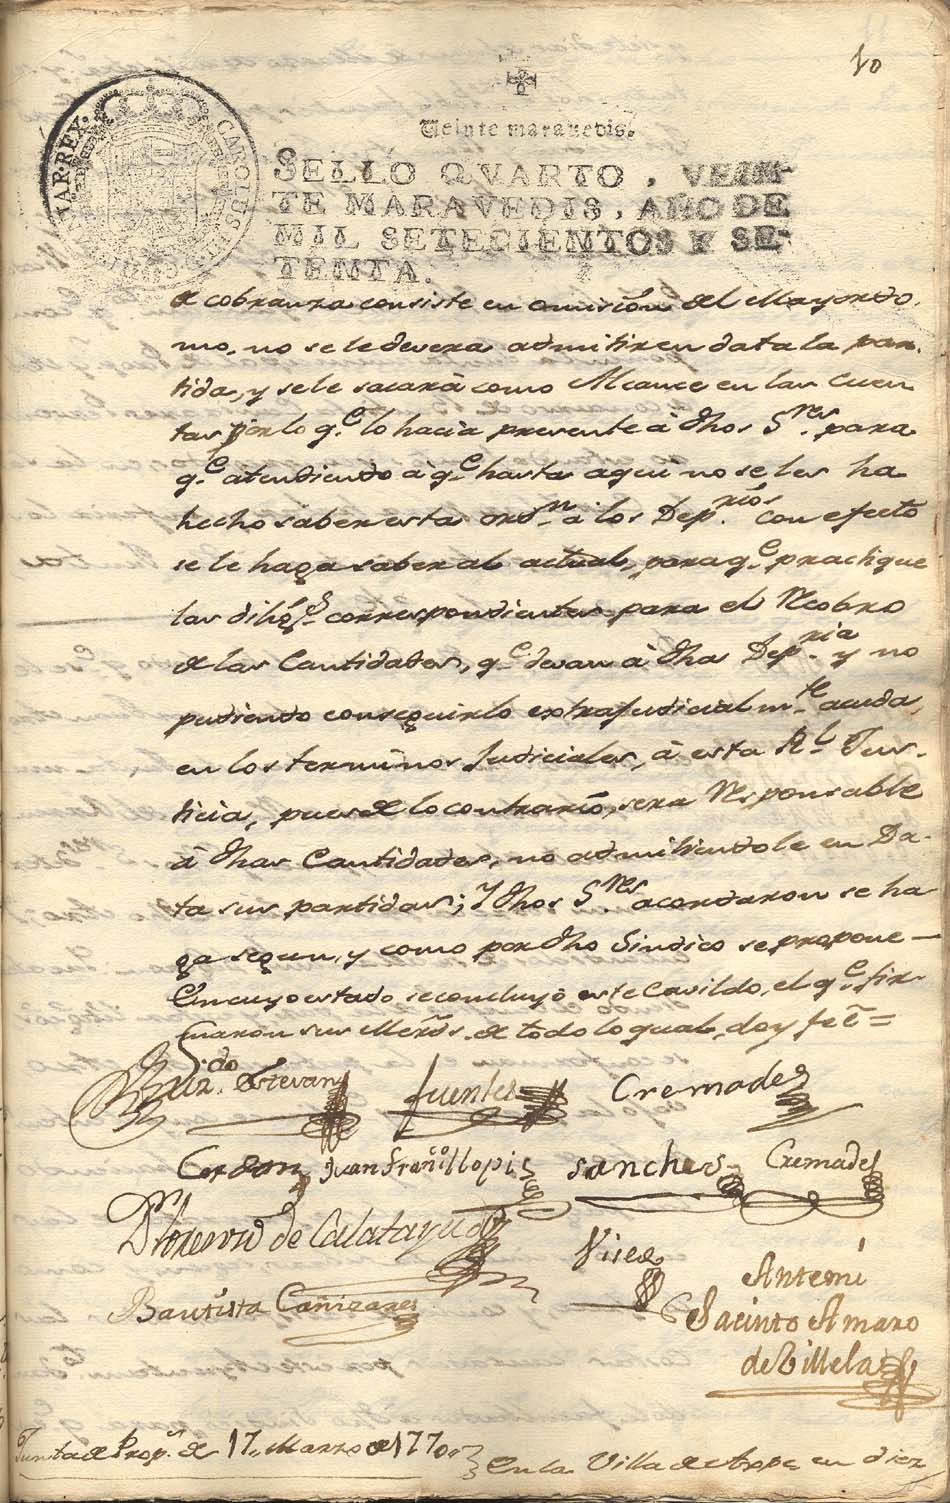 10
Veinte maravedis.
SELLO QVARTO, VEIN-
TE MARAVEDIS, AÑO DE
MIL SETECIENTOS Y SE-
TENTA.
CAROLUS III
REX
de cobranza consiste en omision del Mayordo
mo, no se le devera admitir en data la par-
tida, y se le sacará como Alcance en las Cuen
tas por lo q.e lo hacia presente à dhos S.res para
q.e atendiendo à q.e hasta aqui no se les ha
hecho saber esta ord.n à los Dep.rios con efecto
se le haga saber al actual, para q.e practique
las dilig.s correspondientes para el Recobro
de las Cantidades, q.e devan à dha Dep.ria y no
pudiendo conseguirlo extrajudicialm.te acuda,
en los terminos Judiciales, à esta R.l Jus-
ticia, pues de lo contrario, sera Responsable
à dhas Cantidades, no admitiendole en Da-
ta sus partidas; Y dhos S.res acordaron se ha
ga segun, y como por dho Sindico se propone—
En cuyo estado se concluyó este Cavildo, el q.e fir-
maron sus Merds. de todo lo qual, doy feé=
Estevan Fuentes Cremades
Cerdan Juan Fran.co Llopis Sanches Cremades
D.r Lorenzo de Calatayud
Bautista Cañizares
Antemi
Jacinto Amaro
de Villela
Junta de Prop.s de 17,, Marzo de 1770,,
En la Villa de Aspe en diez